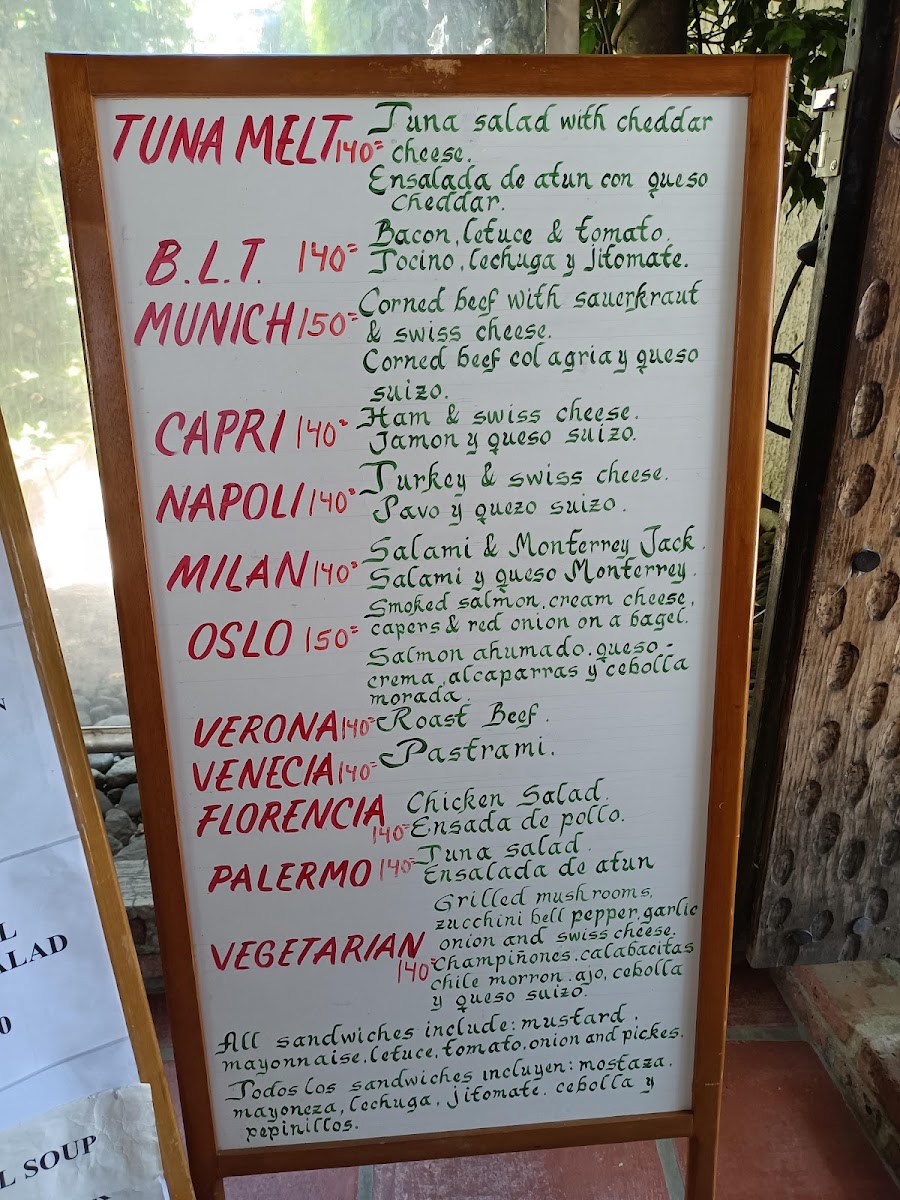 TUNA MELT 140= Tuna salad with cheddar
cheese.
Ensalada de atun con queso
cheddar.
B.L.T. 140= Bacon, letuce & tomato.
Tocino, lechuga y jitomate.
MUNICH 150= Corned beef with sauerkraut
& swiss cheese.
Corned beef col agria y queso
suizo.
CAPRI 140= Ham & swiss cheese.
Jamon y queso suizo.
NAPOLI 140= Turkey & swiss cheese.
Pavo y quezo suizo.
MILAN 140= Salami & Monterrey Jack.
Salami y queso Monterrey.
OSLO 150= Smoked salmon, cream cheese,
capers & red onion on a bagel.
Salmon ahumado, queso -
crema, alcaparras y cebolla
morada.
VERONA 140= Roast Beef.
VENECIA 140= Pastrami.
FLORENCIA 140= Chicken Salad.
Ensada de pollo.
PALERMO 140= Tuna salad.
Ensalada de atun
VEGETARIAN 140= Grilled mushrooms,
zucchini bell pepper, garlic
onion and swiss cheese.
Champiñones, calabacitas
chile morron, ajo, cebolla
y queso suizo.
All sandwiches include: mustard,
mayonnaise, letuce, tomato, onion and pickes.
Todos los sandwiches incluyen: mostaza,
mayoneza, lechuga, jitomate, cebolla y
pepinillos.
N
L
ALAD
0
L SOUP